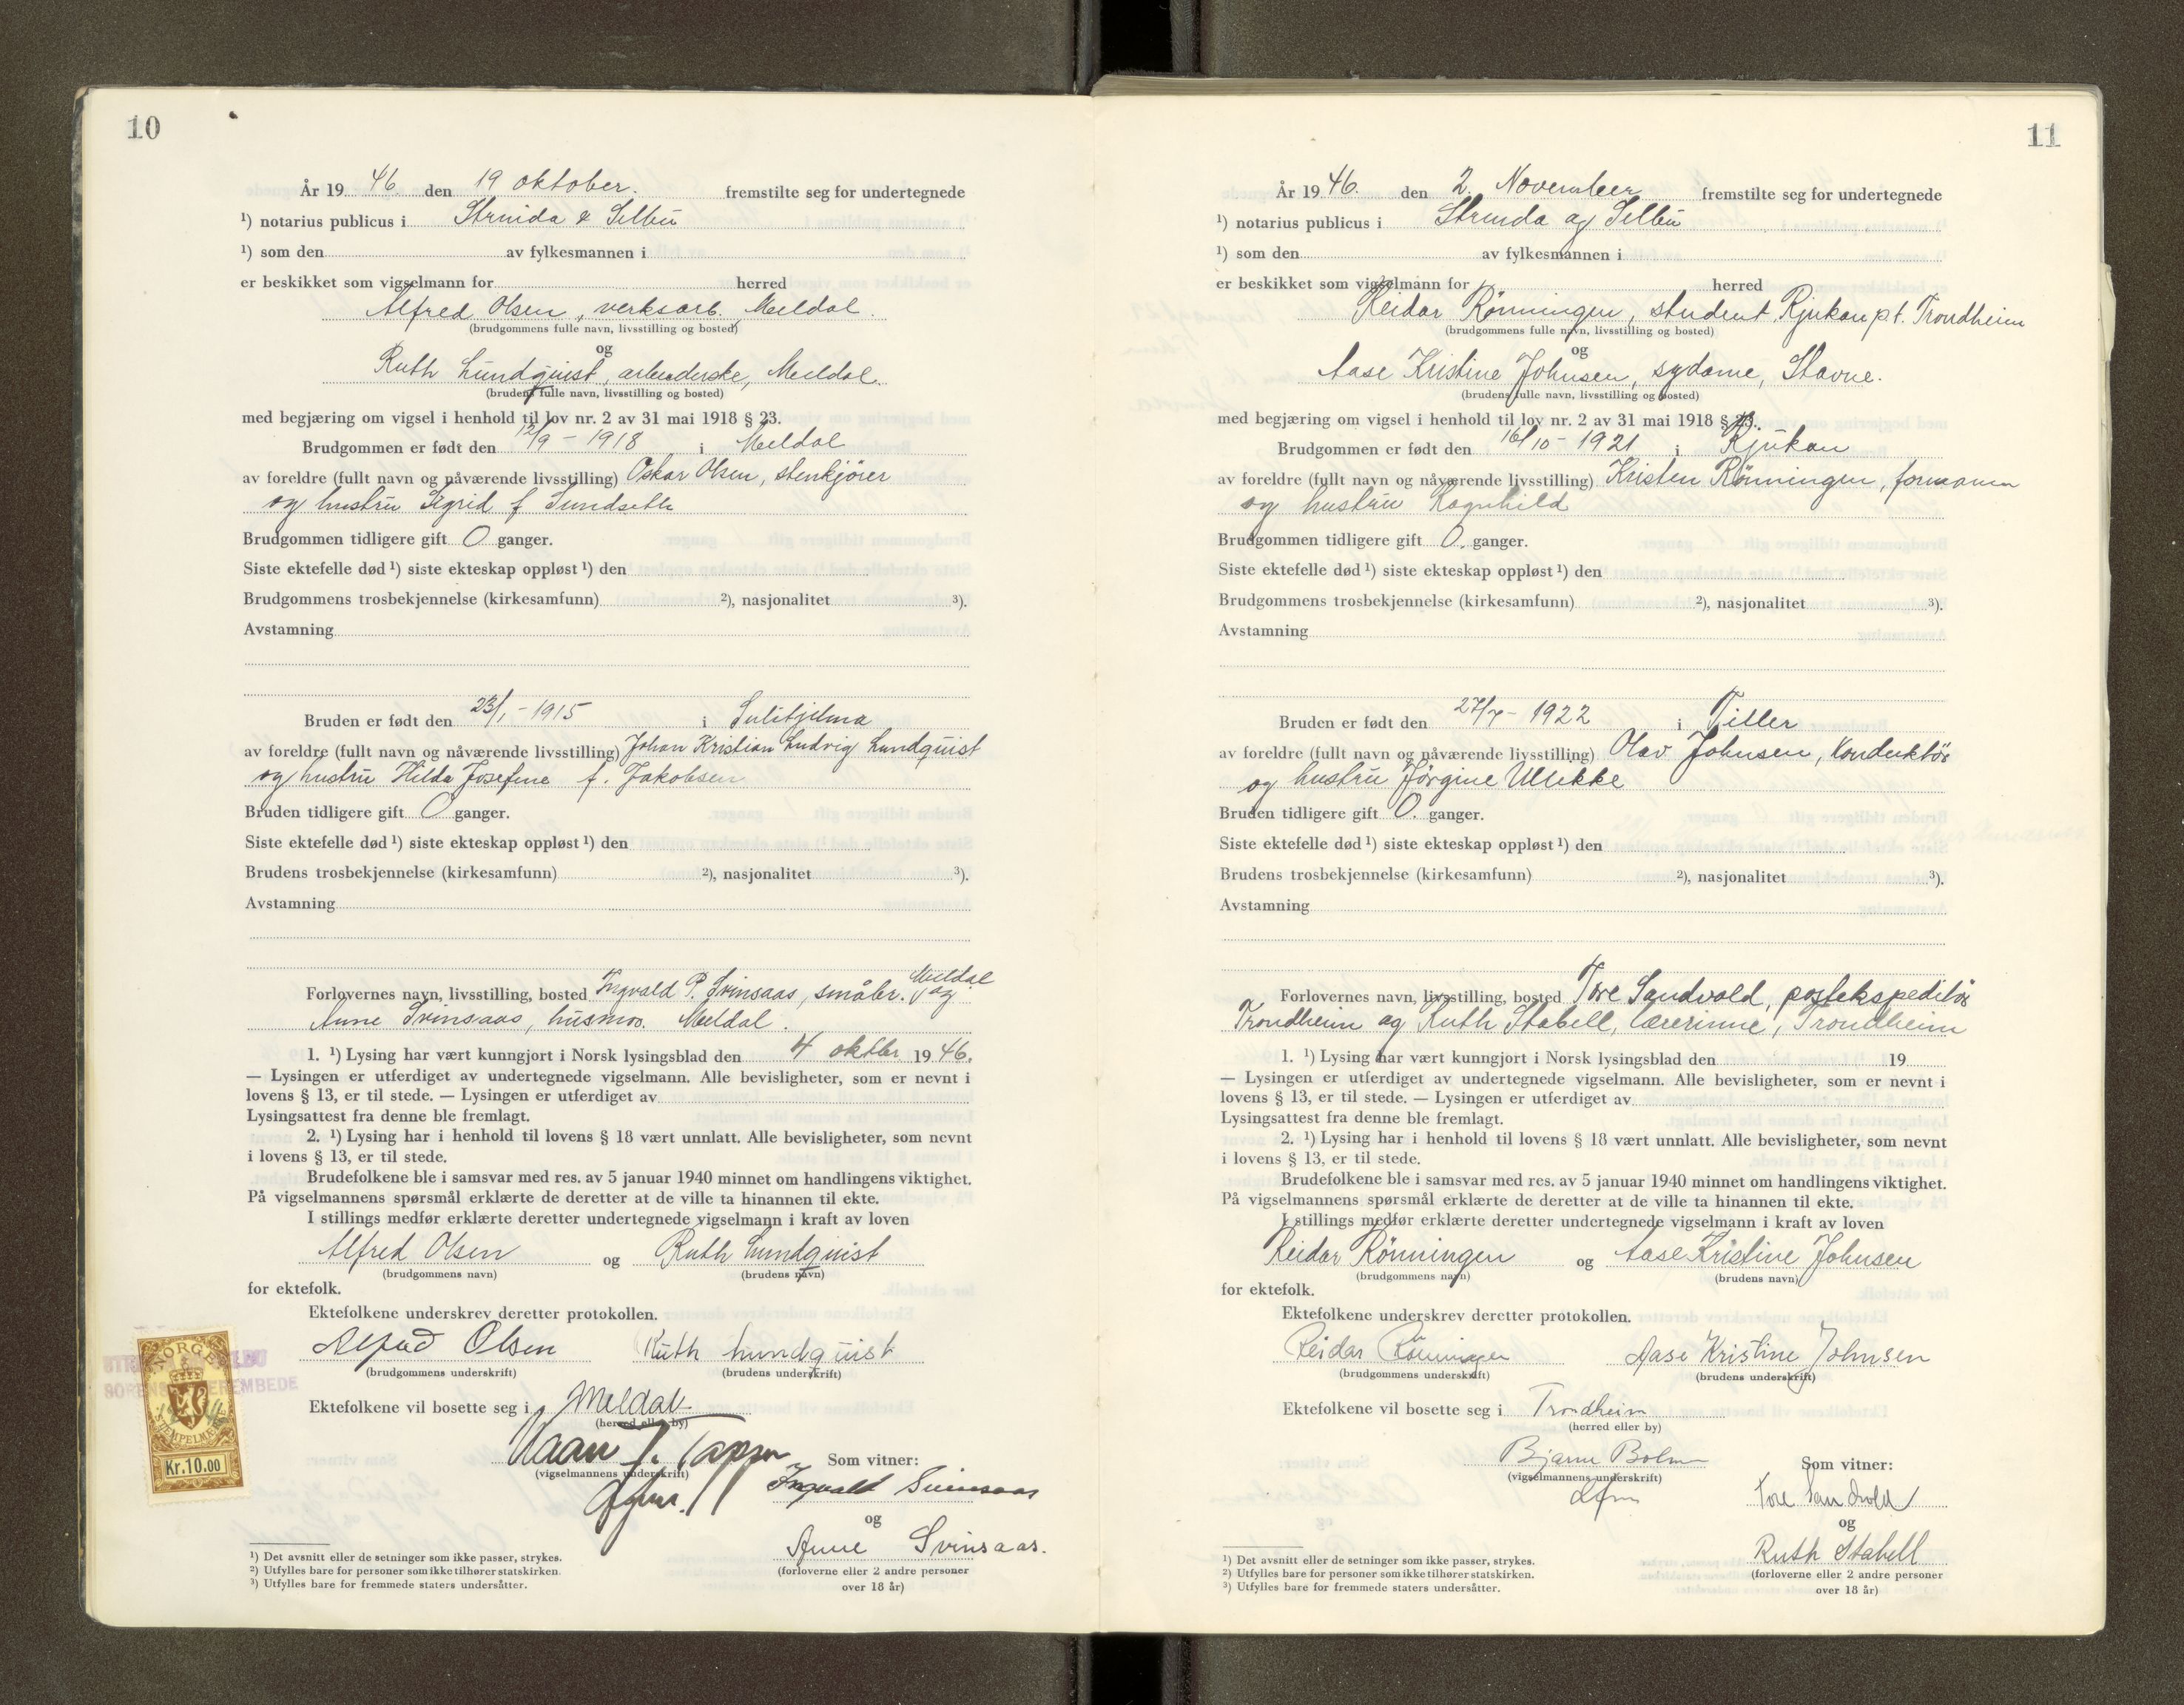 10
År 19 46. den 19 oktober. fremstilte seg for undertegnede
¹) notarius publicus i Strinda & Selbu
¹) som den av fylkesmannen i
er beskikket som vigselmann for herred
Alfred Olsen, verksarb. Meldal.
(brudgommens fulle navn, livsstilling og bosted)
og
Ruth Lundquist, arbeiderske, Meldal.
(brudens fulle navn, livsstilling og bosted)
med begjæring om vigsel i henhold til lov nr. 2 av 31 mai 1918 § 23.
Brudgommen er født den 12/9 - 1918 i Meldal
av foreldre (fullt navn og nåværende livsstilling) Oskar Olsen, stenkjører
og hustru Sigrid f. Sundseth
Brudgommen tidligere gift 0 ganger.
Siste ektefelle død ¹) siste ekteskap oppløst ¹) den
Brudgommens trosbekjennelse (kirkesamfunn) ²), nasjonalitet ³).
Avstamning
Bruden er født den 23/1 - 1915 i Sulitjelma
av foreldre (fullt navn og nåværende livsstilling) Johan Kristian Ludvig Lundquist
og hustru Hilda Josefine f. Jakobsen
Bruden tidligere gift 0 ganger.
Siste ektefelle død ¹) siste ekteskap oppløst ¹) den
Brudens trosbekjennelse (kirkesamfunn) ²), nasjonalitet ³).
Avstamning
Forlovernes navn, livsstilling, bosted Ingvald P. Svinsaas, småbr. Meldal og
Anne Svinsaas, husmor. Meldal.
1. ¹) Lysing har vært kunngjort i Norsk lysingsblad den 4 oktbr 19 46.
— Lysingen er utferdiget av undertegnede vigselmann. Alle bevisligheter, som er nevnt i
lovens § 13, er til stede. — Lysingen er utferdiget av
Lysingsattest fra denne ble fremlagt.
2. ¹) Lysing har i henhold til lovens § 18 vært unnlatt. Alle bevisligheter, som nevnt
i lovens § 13, er til stede.
Brudefolkene ble i samsvar med res. av 5 januar 1940 minnet om handlingens viktighet.
På vigselmannens spørsmål erklærte de deretter at de ville ta hinannen til ekte.
I stillings medfør erklærte deretter undertegnede vigselmann i kraft av loven
Alfred Olsen og Ruth Lundquist
(brudgommens navn) (brudens navn)
for ektefolk.
Ektefolkene underskrev deretter protokollen.
Alfred Olsen Ruth Lundquist
(brudgommens underskrift) (brudens underskrift)
Ektefolkene vil bosette seg i Meldal
(herred eller by)
(vigselmannens underskrift) Som vitner:
Ingvald Svinsaas
og
Anne Svinsaas.
(forloverne eller 2 andre personer
over 18 år)
NORGE
STEMPELMERKE
Kr. 10.00
¹) Det avsnitt eller de setninger som ikke passer, strykes.
²) Utfylles bare for personer som ikke tilhører statskirken.
³) Utfylles bare for fremmede staters undersåtter.
11
År 19 46. den 2. November fremstilte seg for undertegnede
¹) notarius publicus i Strinda og Selbu
¹) som den av fylkesmannen i
er beskikket som vigselmann for herred
Reidar Rönningen, student, Rjukan p.t. Trondheim
(brudgommens fulle navn, livsstilling og bosted)
og
Aase Kristine Johnsen, sydame, Stavne.
(brudens fulle navn, livsstilling og bosted)
med begjæring om vigsel i henhold til lov nr. 2 av 31 mai 1918 § 23.
Brudgommen er født den 16/10 - 1921 i Rjukan
av foreldre (fullt navn og nåværende livsstilling) Kristen Rönningen, formann
og hustru Ragnhild
Brudgommen tidligere gift 0. ganger.
Siste ektefelle død ¹) siste ekteskap oppløst ¹) den
Brudgommens trosbekjennelse (kirkesamfunn) ²), nasjonalitet ³).
Avstamning
Bruden er født den 27/7 - 1922 i Tiller
av foreldre (fullt navn og nåværende livsstilling) Olav Johnsen, konduktør
og hustru Jørgine Ullikke
Bruden tidligere gift 0. ganger.
Siste ektefelle død ¹) siste ekteskap oppløst ¹) den
Brudens trosbekjennelse (kirkesamfunn) ²), nasjonalitet ³).
Avstamning
Forlovernes navn, livsstilling, bosted Tore Sandvold, postekspeditør
Trondheim og Ruth Stabell, lærerinne, Trondheim
1. ¹) Lysing har vært kunngjort i Norsk lysingsblad den 19
— Lysingen er utferdiget av undertegnede vigselmann. Alle bevisligheter, som er nevnt i
lovens § 13, er til stede. — Lysingen er utferdiget av
Lysingsattest fra denne ble fremlagt.
2. ¹) Lysing har i henhold til lovens § 18 vært unnlatt. Alle bevisligheter, som nevnt
i lovens § 13, er til stede.
Brudefolkene ble i samsvar med res. av 5 januar 1940 minnet om handlingens viktighet.
På vigselmannens spørsmål erklærte de deretter at de ville ta hinannen til ekte.
I stillings medfør erklærte deretter undertegnede vigselmann i kraft av loven
Reidar Rönningen og Aase Kristine Johnsen
(brudgommens navn) (brudens navn)
for ektefolk.
Ektefolkene underskrev deretter protokollen.
Reidar Rönningen Aase Kristine Johnsen
(brudgommens underskrift) (brudens underskrift)
Ektefolkene vil bosette seg i Trondheim
(herred eller by)
Bjarne Bolme
(vigselmannens underskrift) Som vitner:
Tore Sandvold
og
Ruth Stabell
(forloverne eller 2 andre personer
over 18 år)
¹) Det avsnitt eller de setninger som ikke passer, strykes.
²) Utfylles bare for personer som ikke tilhører statskirken.
³) Utfylles bare for fremmede staters undersåtter.